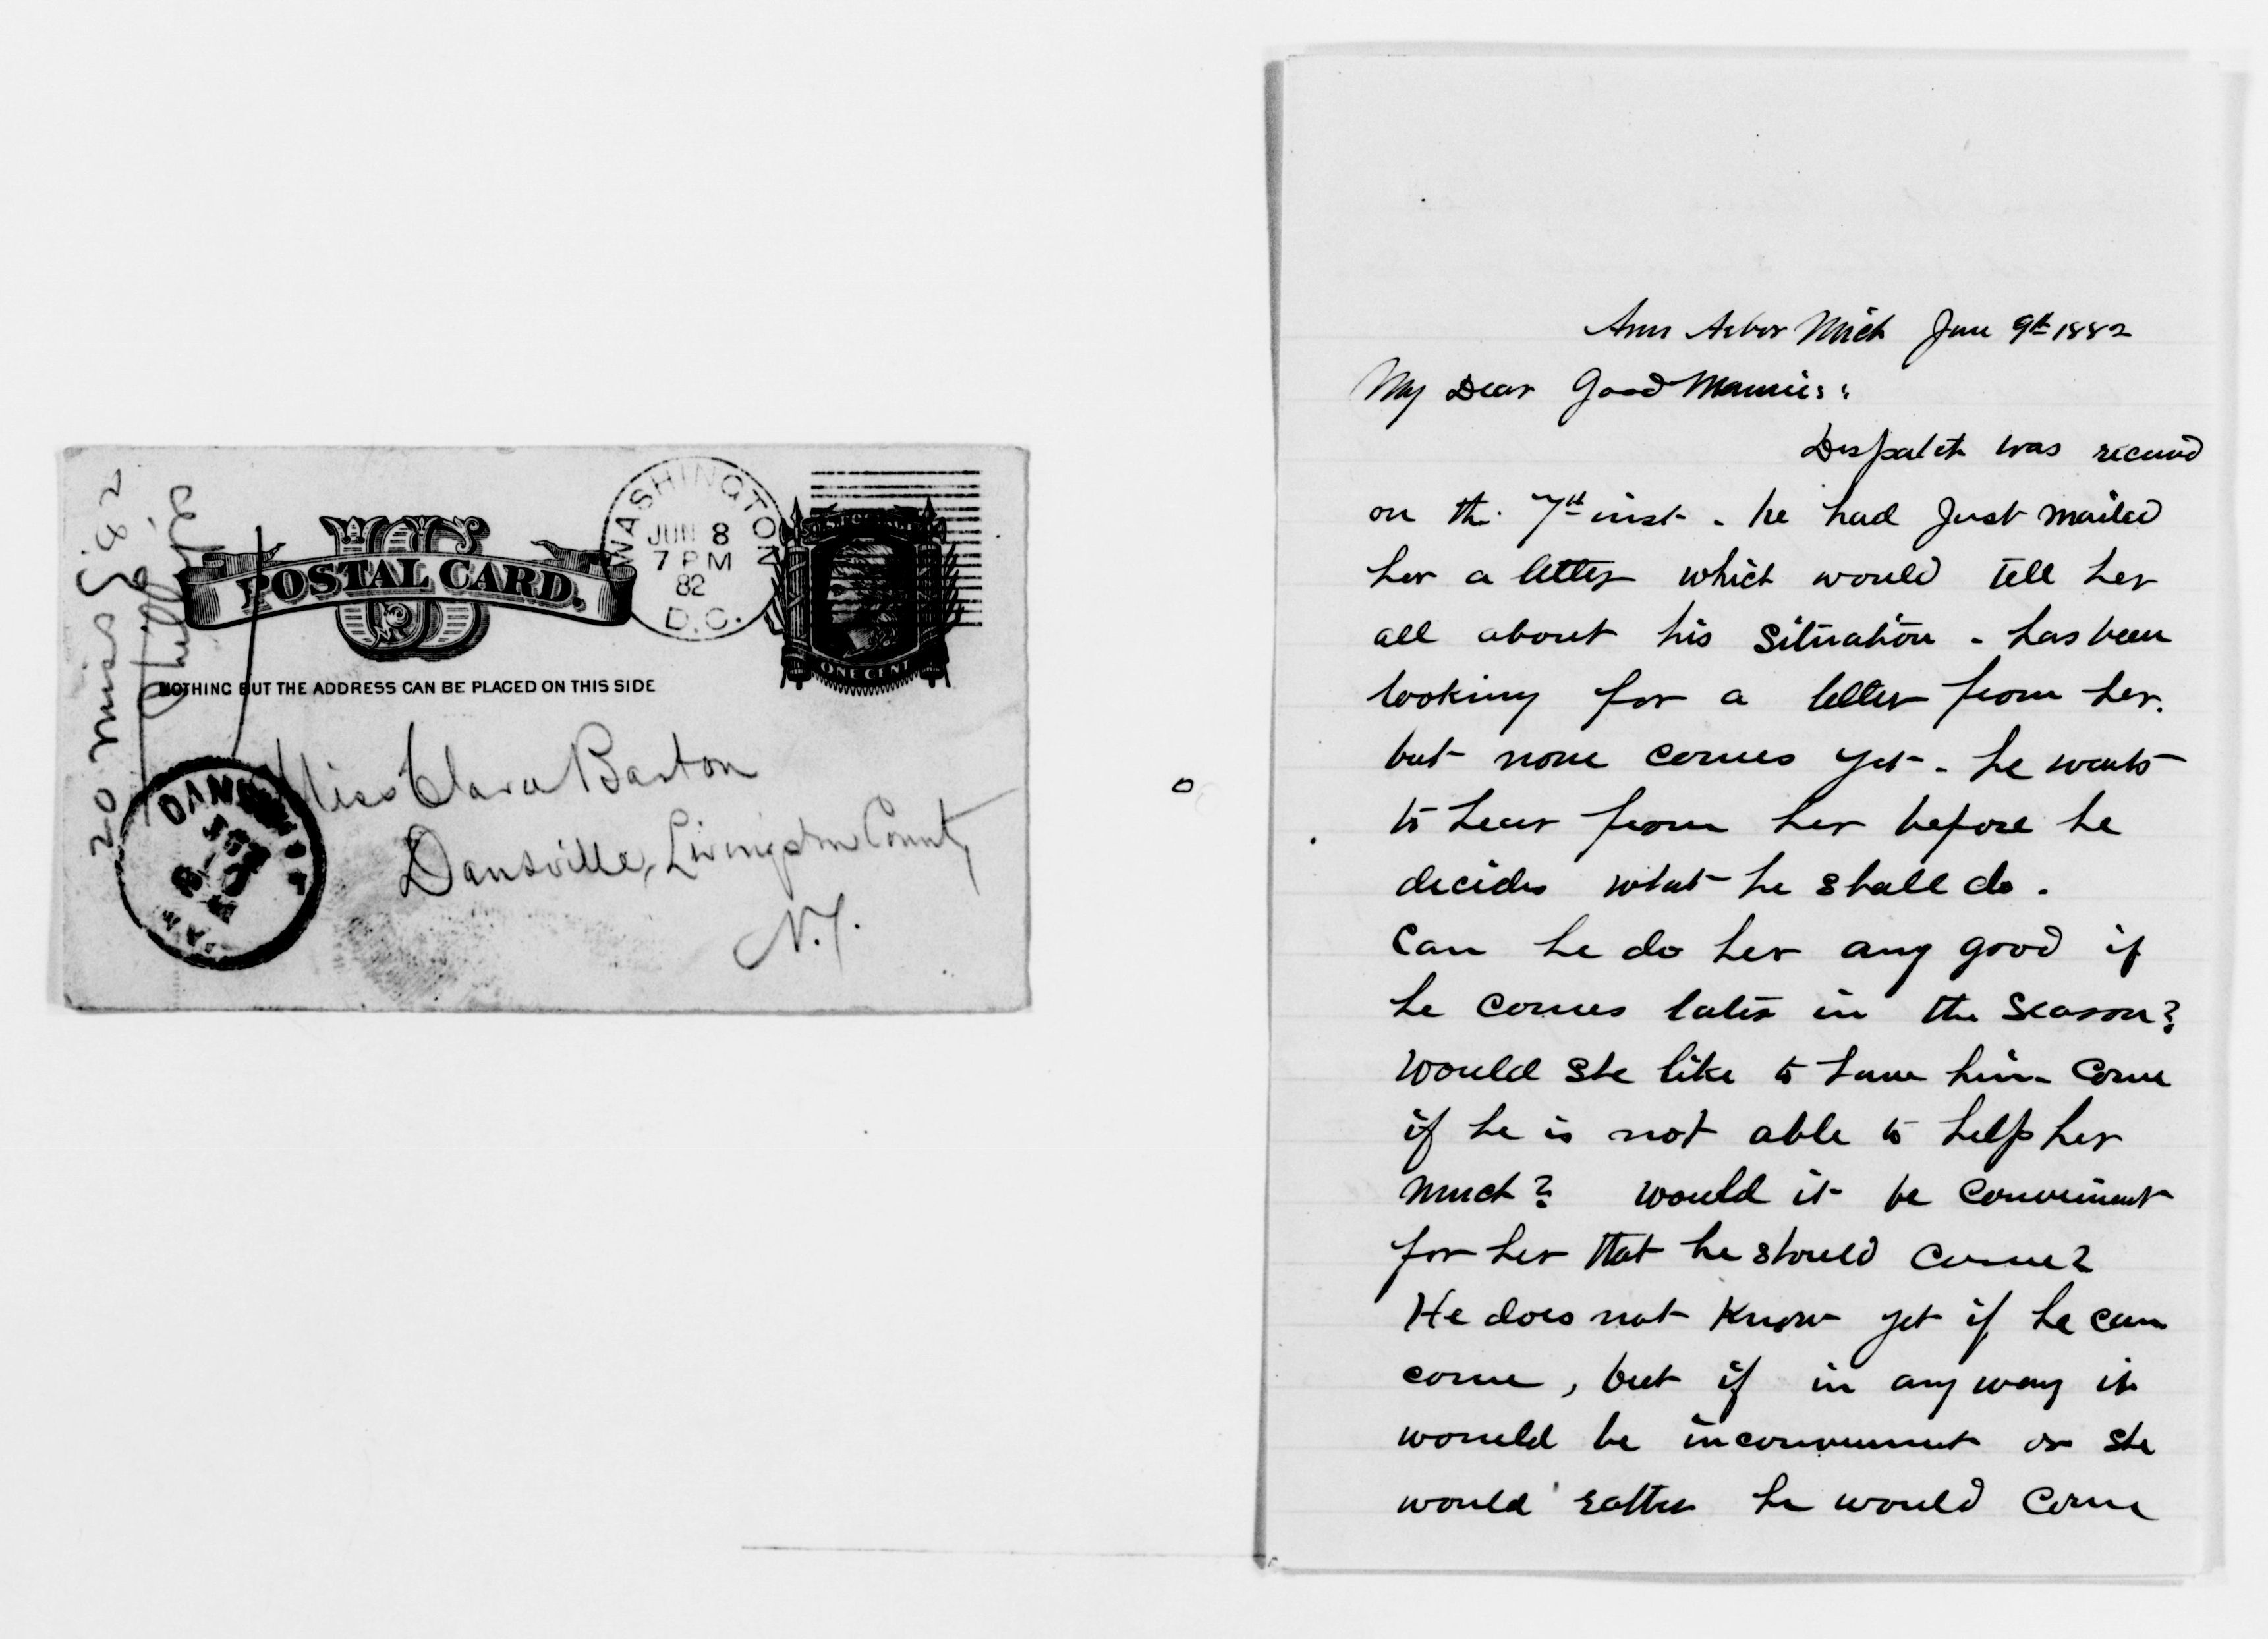 20 Miss S. 82
Phillips
U S
POSTAL CARD.
WASHINGTON
JUN 8
7 PM
82
D.C.
ONE CENT
NOTHING BUT THE ADDRESS CAN BE PLACED ON THIS SIDE
Miss Clara Barton
Dansville, Livingston County
N.Y.
Ann Arbor Mich June 9th 1882
My Dear Good Mamie:
Dispatch was received
on the 7th inst - he had just mailed
her a letter which would tell her
all about his situation - has been
looking for a letter from her.
but none comes yet - he wants
to hear from her before he
decides what he shall do.
Can he do her any good if
he comes later in the season?
Would she like to have him come
if he is not able to help her
much? would it be convenient
for her that he should come?
He does not know yet if he can
come, but if in any way it
would be inconvenient or she
would rather he would come